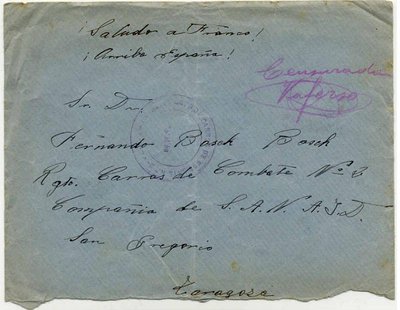 ¡Saludo a Franco!
¡Arriba España!
Censurada
Sr. Dn.
Fernando Bosch Bosch
Rgto. Carros de Combate Nº 3
Compañia de S. A. N. A. I. D.
San Gregorio
Zaragoza